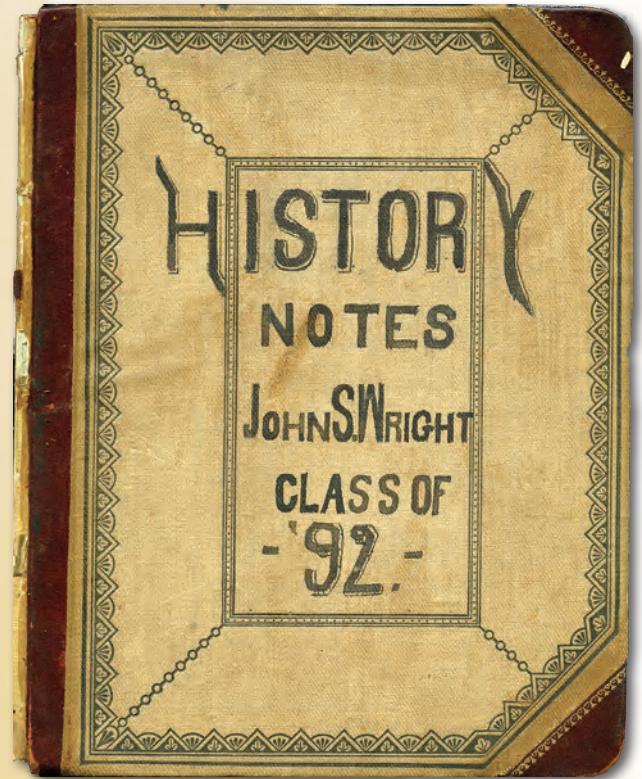 HISTORY
NOTES
JOHN S. WRIGHT
CLASS OF
- '92. -